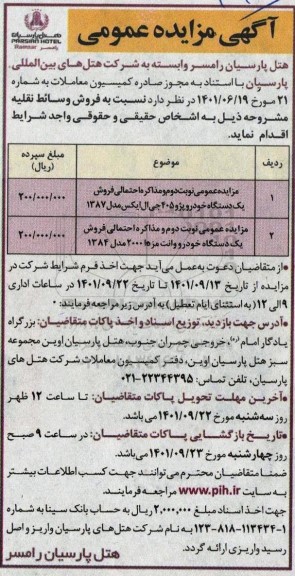 هتل پارسیان
PARSIAN HOTEL
Ramsar رامسر
آگهی مزایده عمومی
هتل پارسیان رامسر وابسته به شرکت هتل‌های بین‌المللی
پارسیان با استناد به مجوز صادره کمیسیون معاملات به شماره
۲۱ مورخ ۱۴۰۱/۰۶/۱۹ در نظر دارد نسبت به فروش وسائط نقلیه
مشروحه ذیل به اشخاص حقیقی و حقوقی واجد شرایط
اقدام نماید.
ردیف موضوع مبلغ سپرده (ریال)
۱ مزایده عمومی نوبت دوم و مذاکره احتمالی فروش
یک دستگاه خودرو پژو ۴۰۵ جی ال ایکس مدل ۱۳۸۷ ۲۰۰/۰۰۰/۰۰۰
۲ مزایده عمومی نوبت دوم و مذاکره احتمالی فروش
یک دستگاه خودرو وانت مزدا ۲۰۰۰ مدل ۱۳۸۴ ۲۰۰/۰۰۰/۰۰۰
•از متقاضیان دعوت به‌عمل می‌آید جهت اخذ فرم شرایط شرکت در
مزایده از تاریخ ۱۴۰۱/۰۹/۱۳ تا تاریخ ۱۴۰۱/۰۹/۲۲ در ساعات اداری
۹ الی ۱۲ (به استثنای ایام تعطیل) به آدرس زیر مراجعه فرمایند:
•آدرس جهت بازدید، توزیع اسناد و اخذ پاکات متقاضیان: بزرگراه
یادگار امام (ره)، خروجی چمران جنوب، هتل پارسیان اوین مجموعه
سبز هتل پارسیان اوین، دفتر کمیسیون معاملات شرکت هتل های
پارسیان، تلفن تماس: ۲۲۳۴۴۳۹۵-۰۲۱
•آخرین مهلت تحویل پاکات متقاضیان: تا ساعت ۱۲ ظهر
روز سه‌شنبه مورخ ۱۴۰۱/۰۹/۲۲ می‌باشد.
•تاریخ بازگشایی پاکات متقاضیان: در ساعت ۹ صبح
روز چهارشنبه مورخ ۱۴۰۱/۰۹/۲۳ می‌باشد.
ضمناً متقاضیان محترم می‌توانند جهت کسب اطلاعات بیشتر
به سایت www.pih.ir مراجعه فرمایند.
جهت اخذ اسناد مبلغ ۲،۰۰۰،۰۰۰ ریال به حساب بانک سینا به شماره
۱۲۳-۸۱۸-۱۱۳۴۳۴-۱ به نام شرکت هتل‌های پارسیان واریز و اصل
رسید واریزی ارائه گردد.
هتل پارسیان رامسر